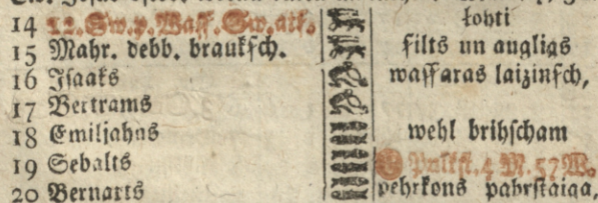 14 12. Sw. p. Wass. Sw. atk. lohti
15 Mahr. debb. brauksch. silts un augligs
16 Isaaks wassaras laizinsch,
17 Bertrams
18 Emiljahns wehl brihscham
19 Sebalts Pulkst. 4 M. 57 W.
20 Bernarts pehrkons pabrstaiga,